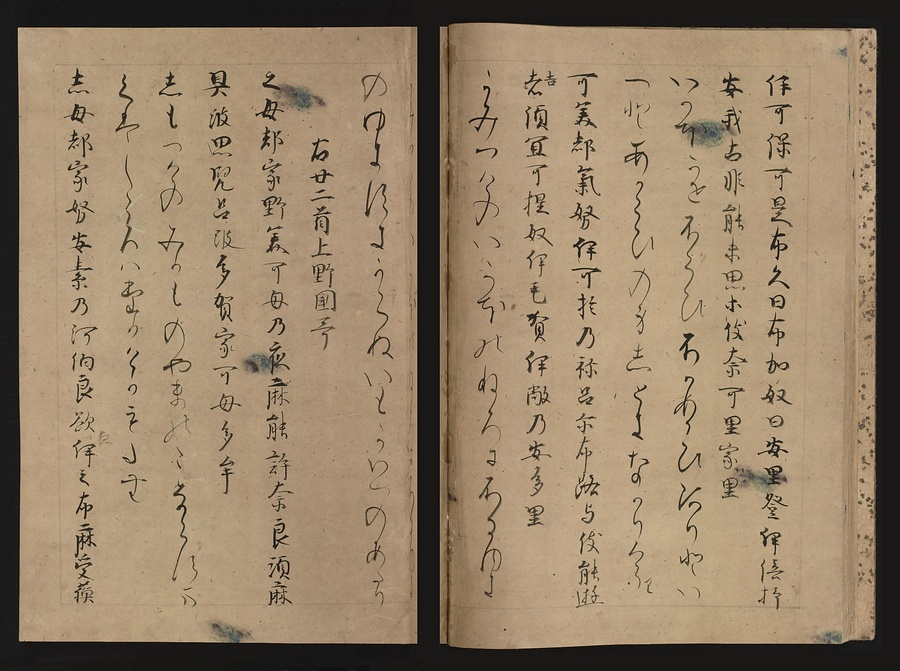 伊可保可是布久日布加奴日安里登伊倍抒
安我古非能未思木伎奈可里家里
いかほかせふくひふかぬひありとい
へとあかこひのみしときなかりけり
可美都氣努伊可抱乃祢呂尓布路与伎能遊
吉須宜可提奴伊毛賀伊敝乃安多里
かみつけのいかほのねろにふるゆき
のゆきすきかてぬいもかいへのあたり
右廿二首上野國哥
之母都家野美可母乃夜麻能許奈良須麻
具波思兒呂波多賀家可母多牟
しもつけのみかものやまのこならす
志母都家努安素乃河伯良欲伊之布麻受蘇